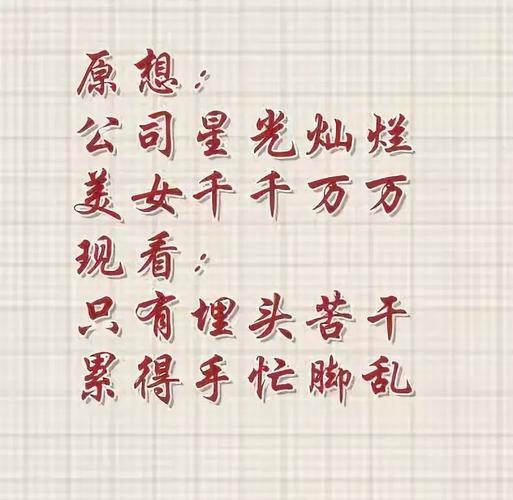 原想：
公司星光灿烂
美女千千万万
现看：
只有埋头苦干
累得手忙脚乱